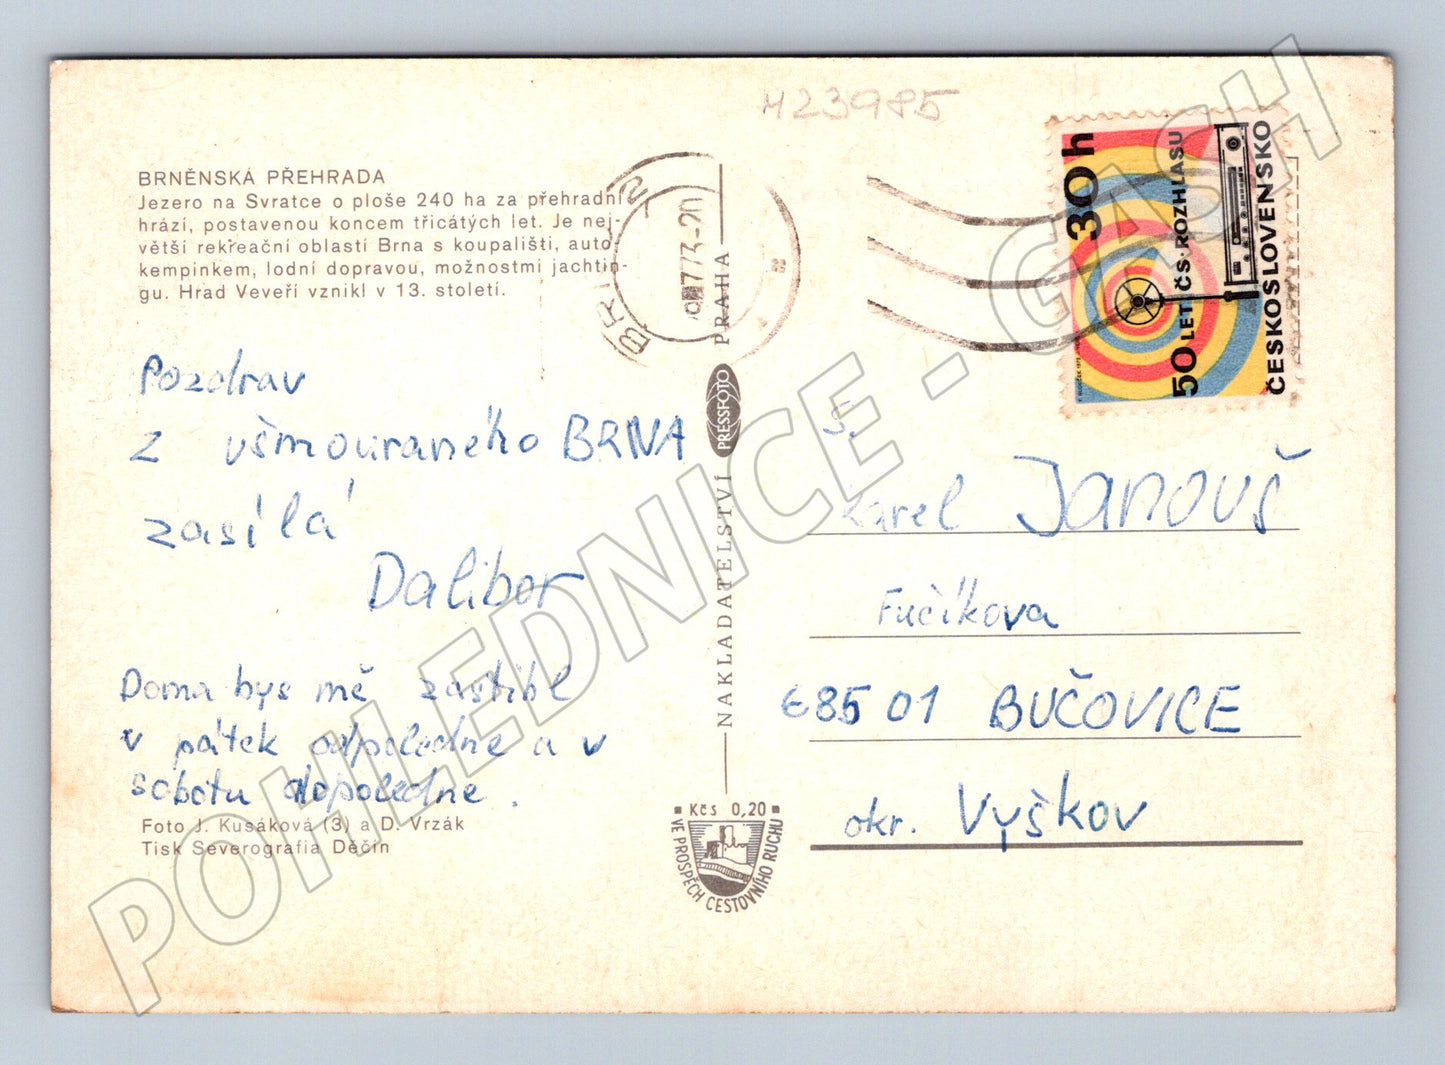 M23985
BRNĚNSKÁ PŘEHRADA
Jezero na Svratce o ploše 240 ha za přehradní
hrází, postavenou koncem třicátých let. Je nej-
větší rekreační oblastí Brna s koupališti, auto-
kempinkem, lodní dopravou, možnostmi jachtin-
gu. Hrad Veveří vznikl v 13. století.
Pozdrav
z ušmouraného BRNA
zasílá
Dalibor
Doma bys mě zastihl
v pátek odpoledne a v
sobotu dopoledne.
Foto J. Kusáková (3) a D. Vrzák
Tisk Severografia Děčín
NAKLADATELSTVÍ
PRESSFOTO
PRAHA
Kčs 0,20
VE PROSPĚCH CESTOVNÍHO RUCHU
30h
50 LET ČS. ROZHLASU
ČESKOSLOVENSKO
S.
Karel Janouš
Fučíkova
68501 BUČOVICE
okr. Vyškov
POHLEDNICE - GASH